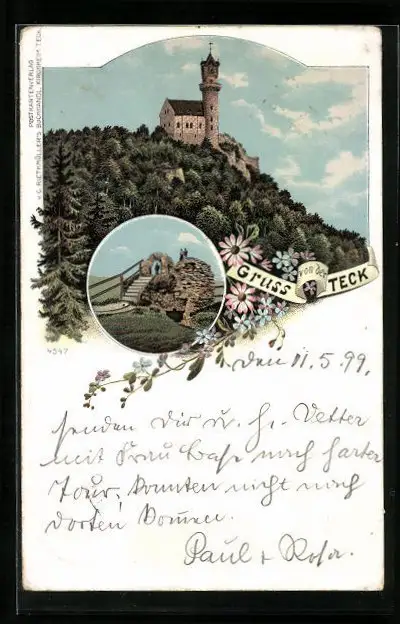 POSTKARTENVERLAG
v. G. RIETHMÜLLER'S BUCHHANDL. KIRCHHEIM TECK.
Gruss von der TECK
4547
den 11.5.99.
senden Dir u. H. Vetter
mit Frau Base nach harter
Tour, konnten nicht nach
dorten kommen.
Paul + Rosa.